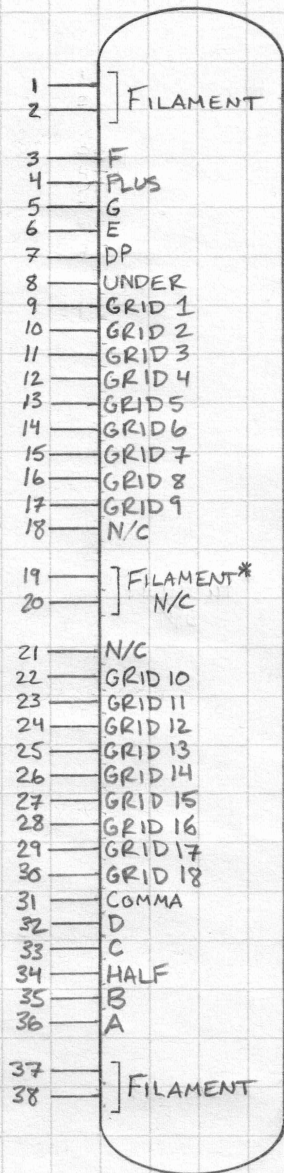 1 ] FILAMENT
2
3 F
4 PLUS
5 G
6 E
7 DP
8 UNDER
9 GRID 1
10 GRID 2
11 GRID 3
12 GRID 4
13 GRID 5
14 GRID 6
15 GRID 7
16 GRID 8
17 GRID 9
18 N/C
19 ] FILAMENT*
20 N/C
21 N/C
22 GRID 10
23 GRID 11
24 GRID 12
25 GRID 13
26 GRID 14
27 GRID 15
28 GRID 16
29 GRID 17
30 GRID 18
31 COMMA
32 D
33 C
34 HALF
35 B
36 A
37
38 ] FILAMENT